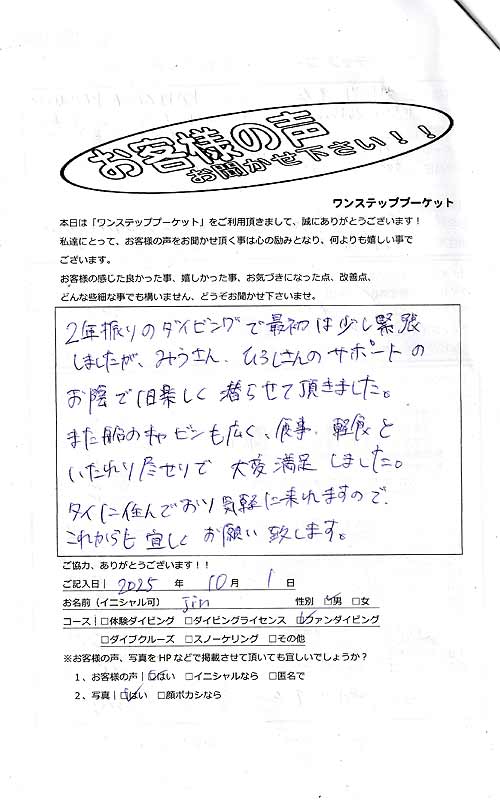 お客様の声
お聞かせ下さい！！
ワンステッププーケット
本日は「ワンステッププーケット」をご利用頂きまして、誠にありがとうございます！
私達にとって、お客様の声をお聞かせ頂く事は心の励みとなり、何よりも嬉しい事で
ございます。
お客様の感じた良かった事、嬉しかった事、お気づきになった点、改善点、
どんな些細な事でも構いません、どうぞお聞かせ下さいませ。
2年振りのダイビングで最初は少し緊張
しましたが、みうさん、ひろしさんのサポートの
お陰で1日楽しく潜らせて頂きました。
また船のキャビンも広く、食事、軽食と
いたれり尽せりで 大変満足しました。
タイに住んでおり気軽に来れますので、
これからも宜しくお願い致します。
ご協力、ありがとうございます！！
ご記入日｜ 2025 年 10 月 1 日
お名前（イニシャル可） Jin 性別 ☑男 □女
コース｜□体験ダイビング □ダイビングライセンス ☑ファンダイビング
□ダイブクルーズ □スノーケリング □その他
※お客様の声、写真をHPなどで掲載させて頂いても宜しいでしょうか？
1、お客様の声｜☑はい □イニシャルなら □匿名で
2、写真｜☑はい □顔ボカシなら